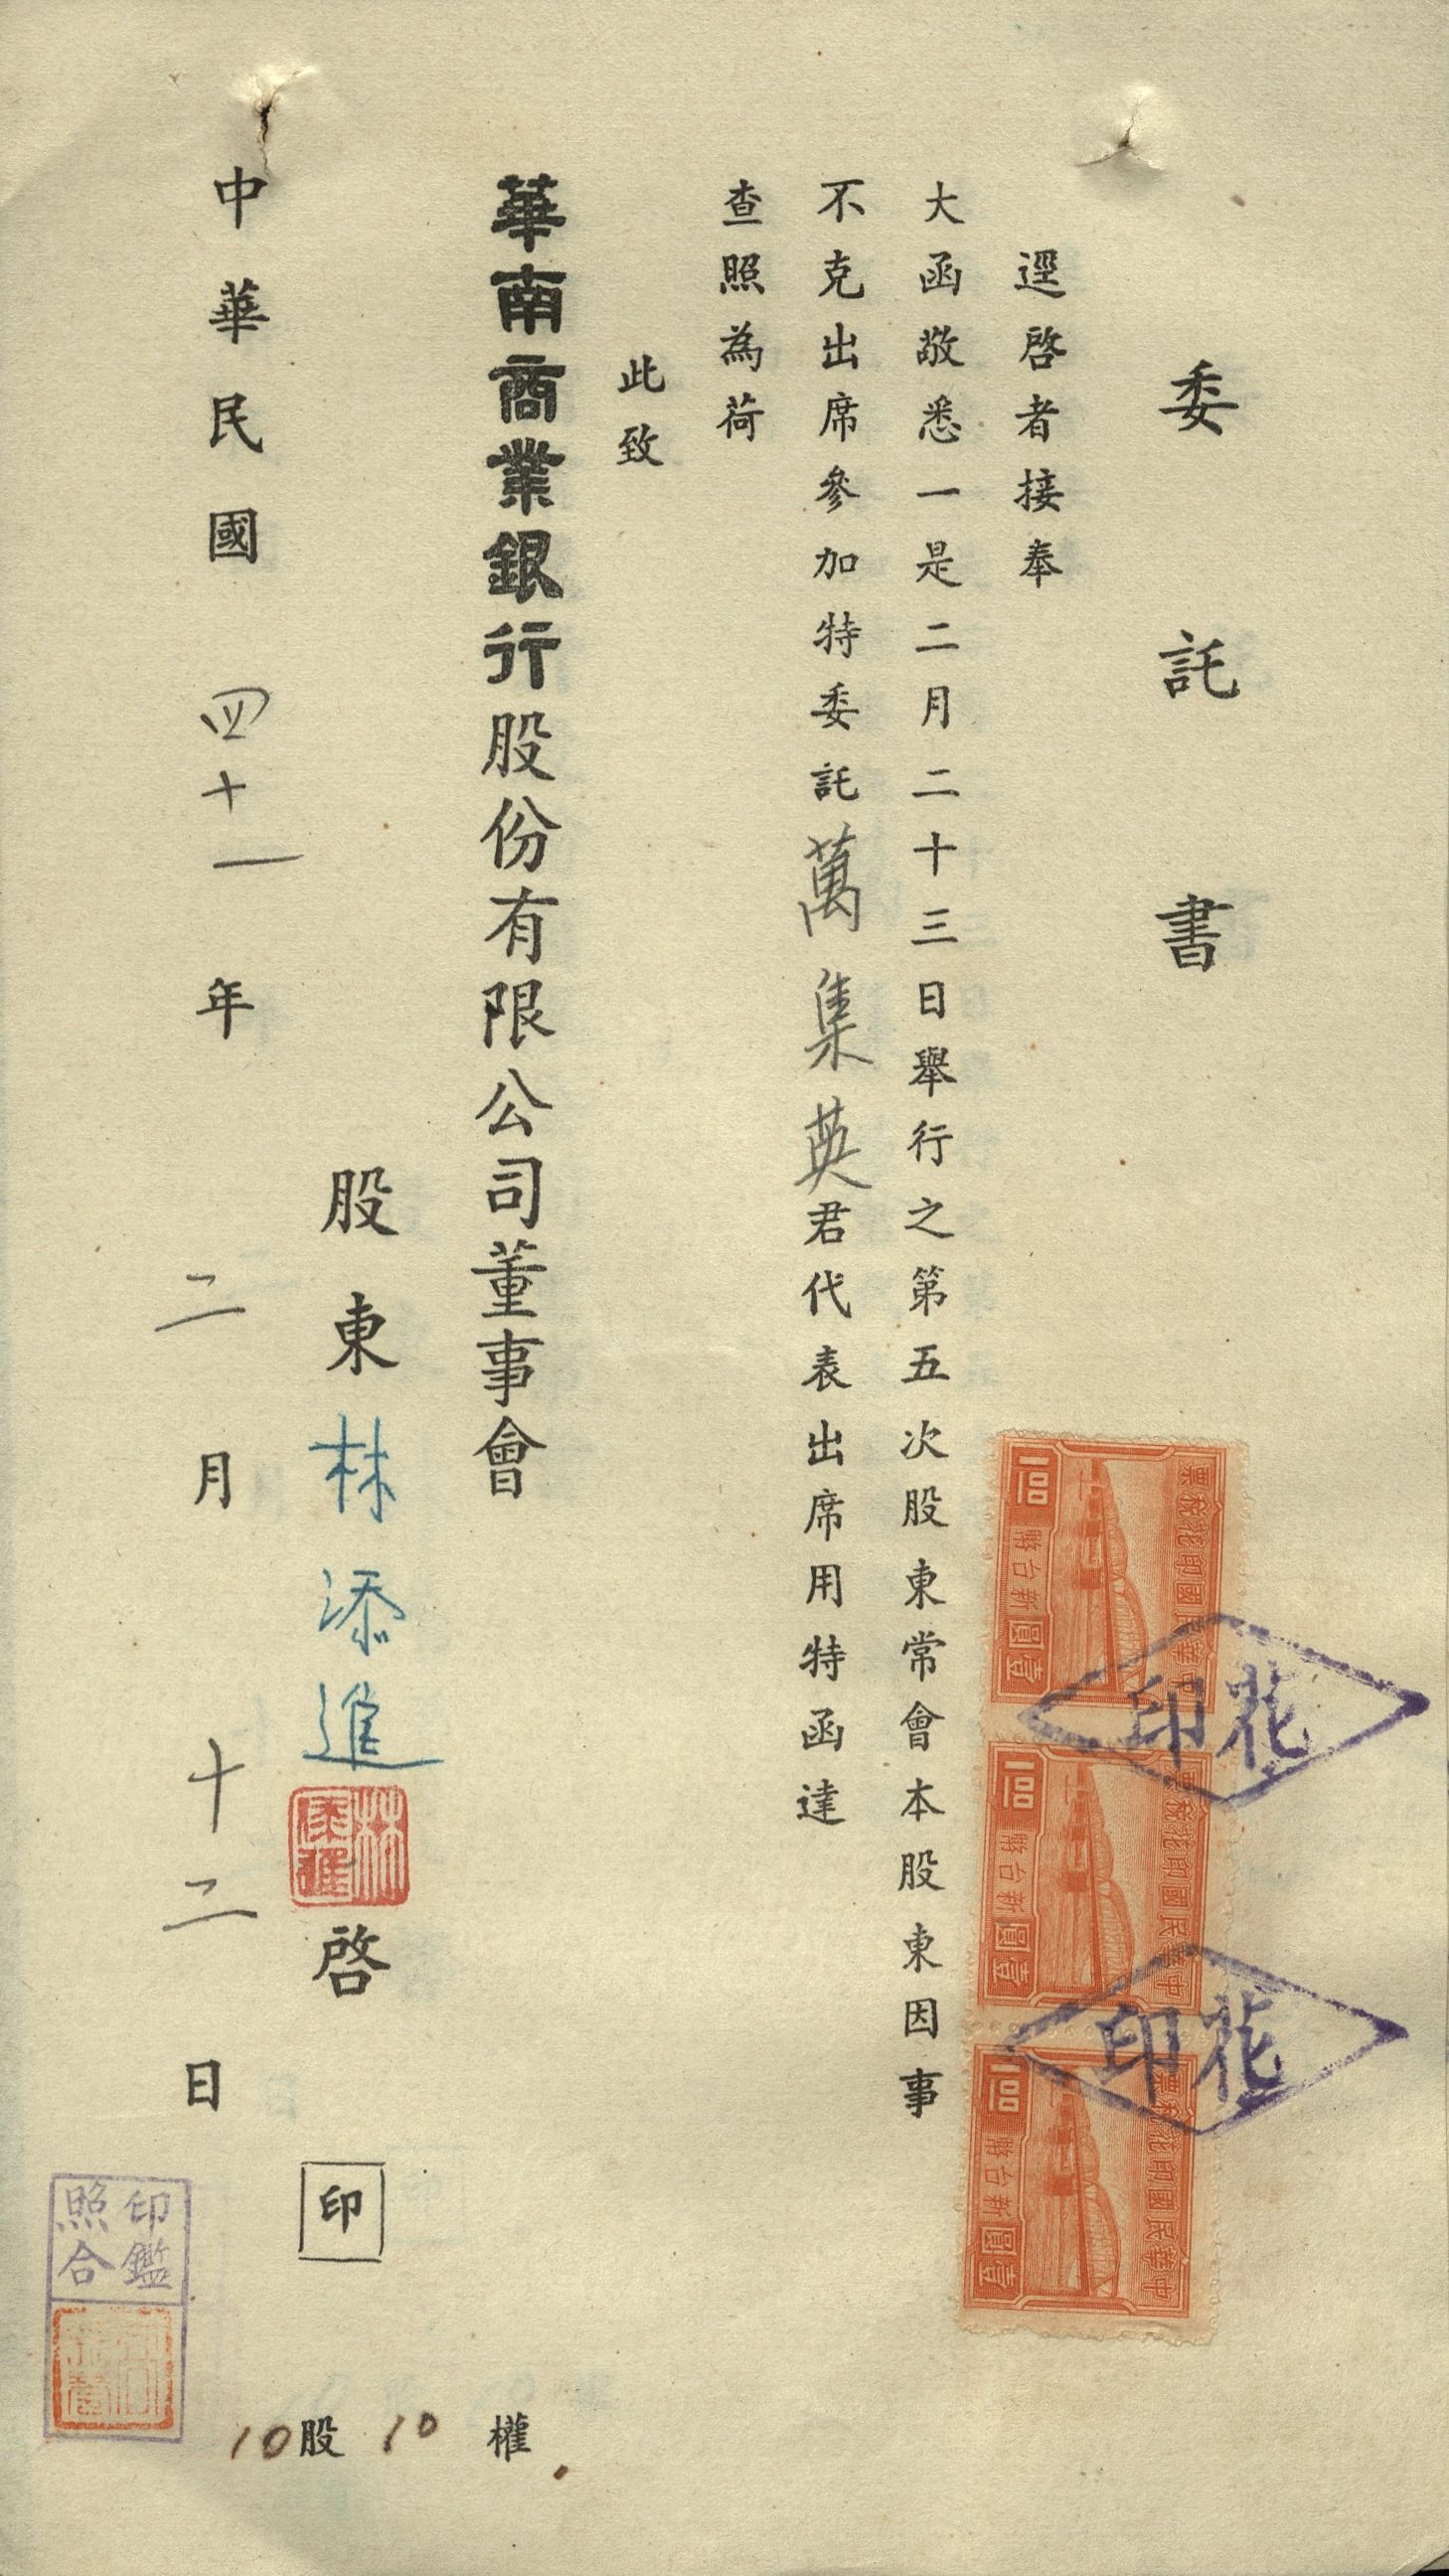 委託書
逕啓者接奉
大函敬悉一是二月二十三日舉行之第五次股東常會本股東因事
不克出席參加特委託萬集英君代表出席用特函達
查照為荷
此致
華南商業銀行股份有限公司董事會
股東林添進啓 印
中華民國四十一年二月十二日
10股 10權
中華民國印花稅票
新台幣
壹圓
1.00
中華民國印花稅票
新台幣
壹圓
1.00
中華民國印花稅票
新台幣
壹圓
1.00
花印
花印
印鑑
照合